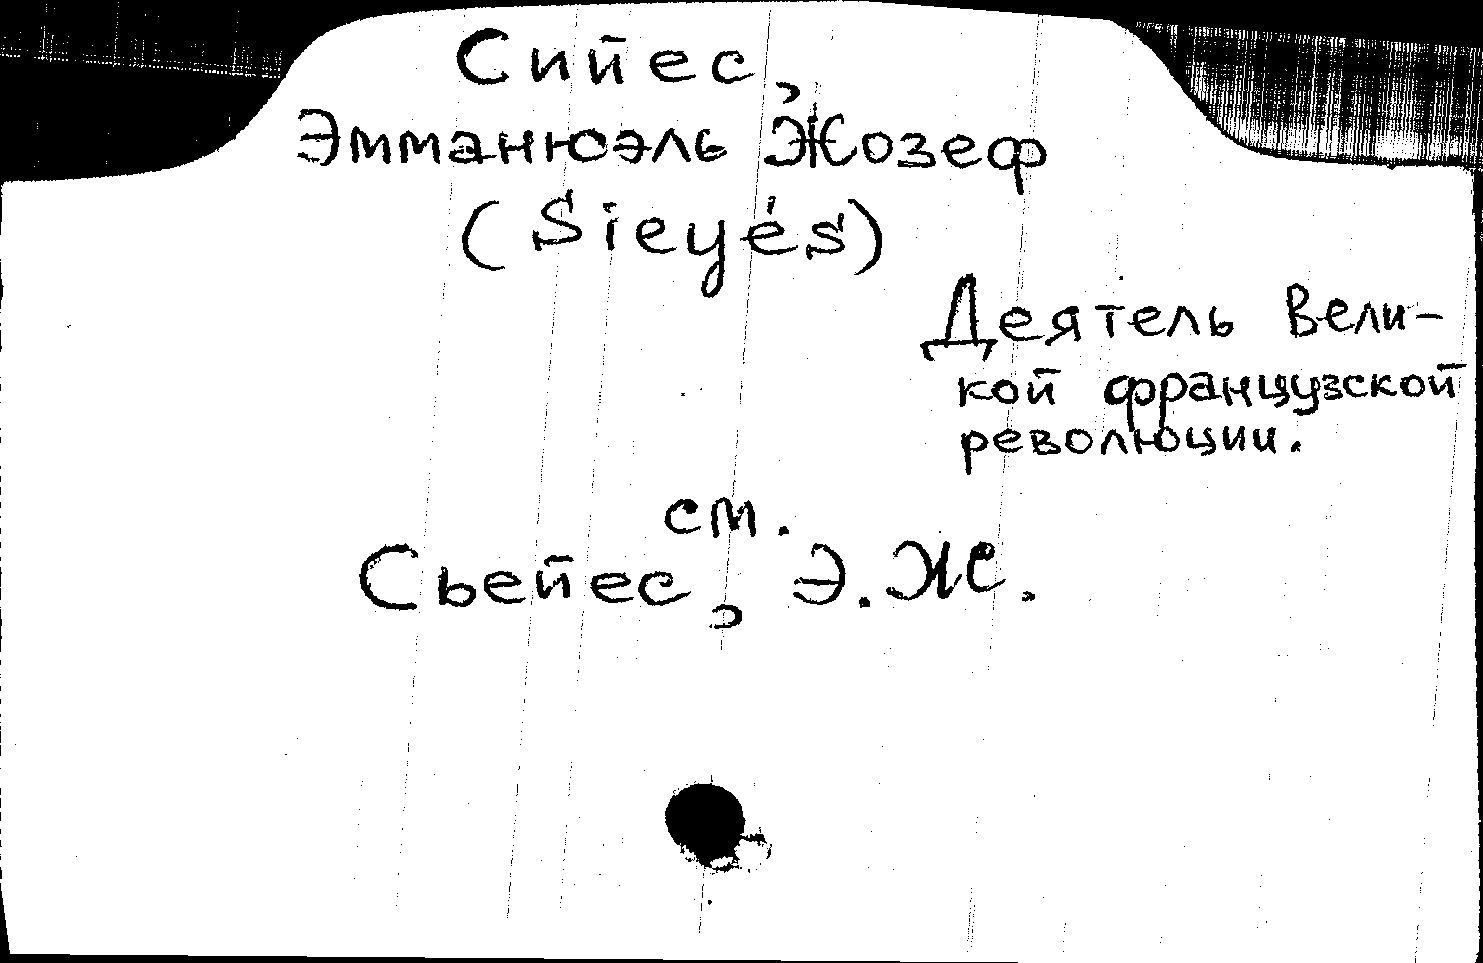 Сийес,
Эмманюэль Жозеф
(Sieyés)
Деятель Вели-
кой французской
революции.
см.
Сьейес, Э.Ж.